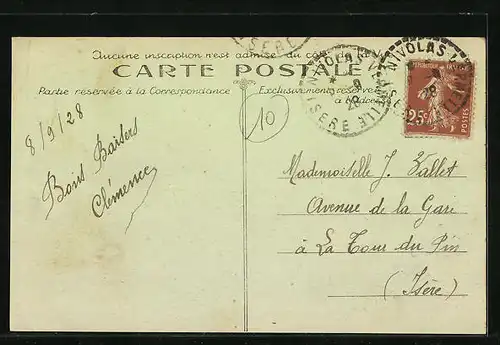 Aucune inscription n'est admise du cô
CARTE POSTALE
Partie réservée à la Correspondance
Exclusivement réservé
à l'adre
ISERE
NIVOLAS VERMELLE
9
28
ISERE
NIVOLAS VE
9
28
25c
POSTES
10
8/9/28
Bons Baisers
Clémence
Mademoiselle J. Vallet
Avenue de la Gare
à La Tour du Pin
(Isère)